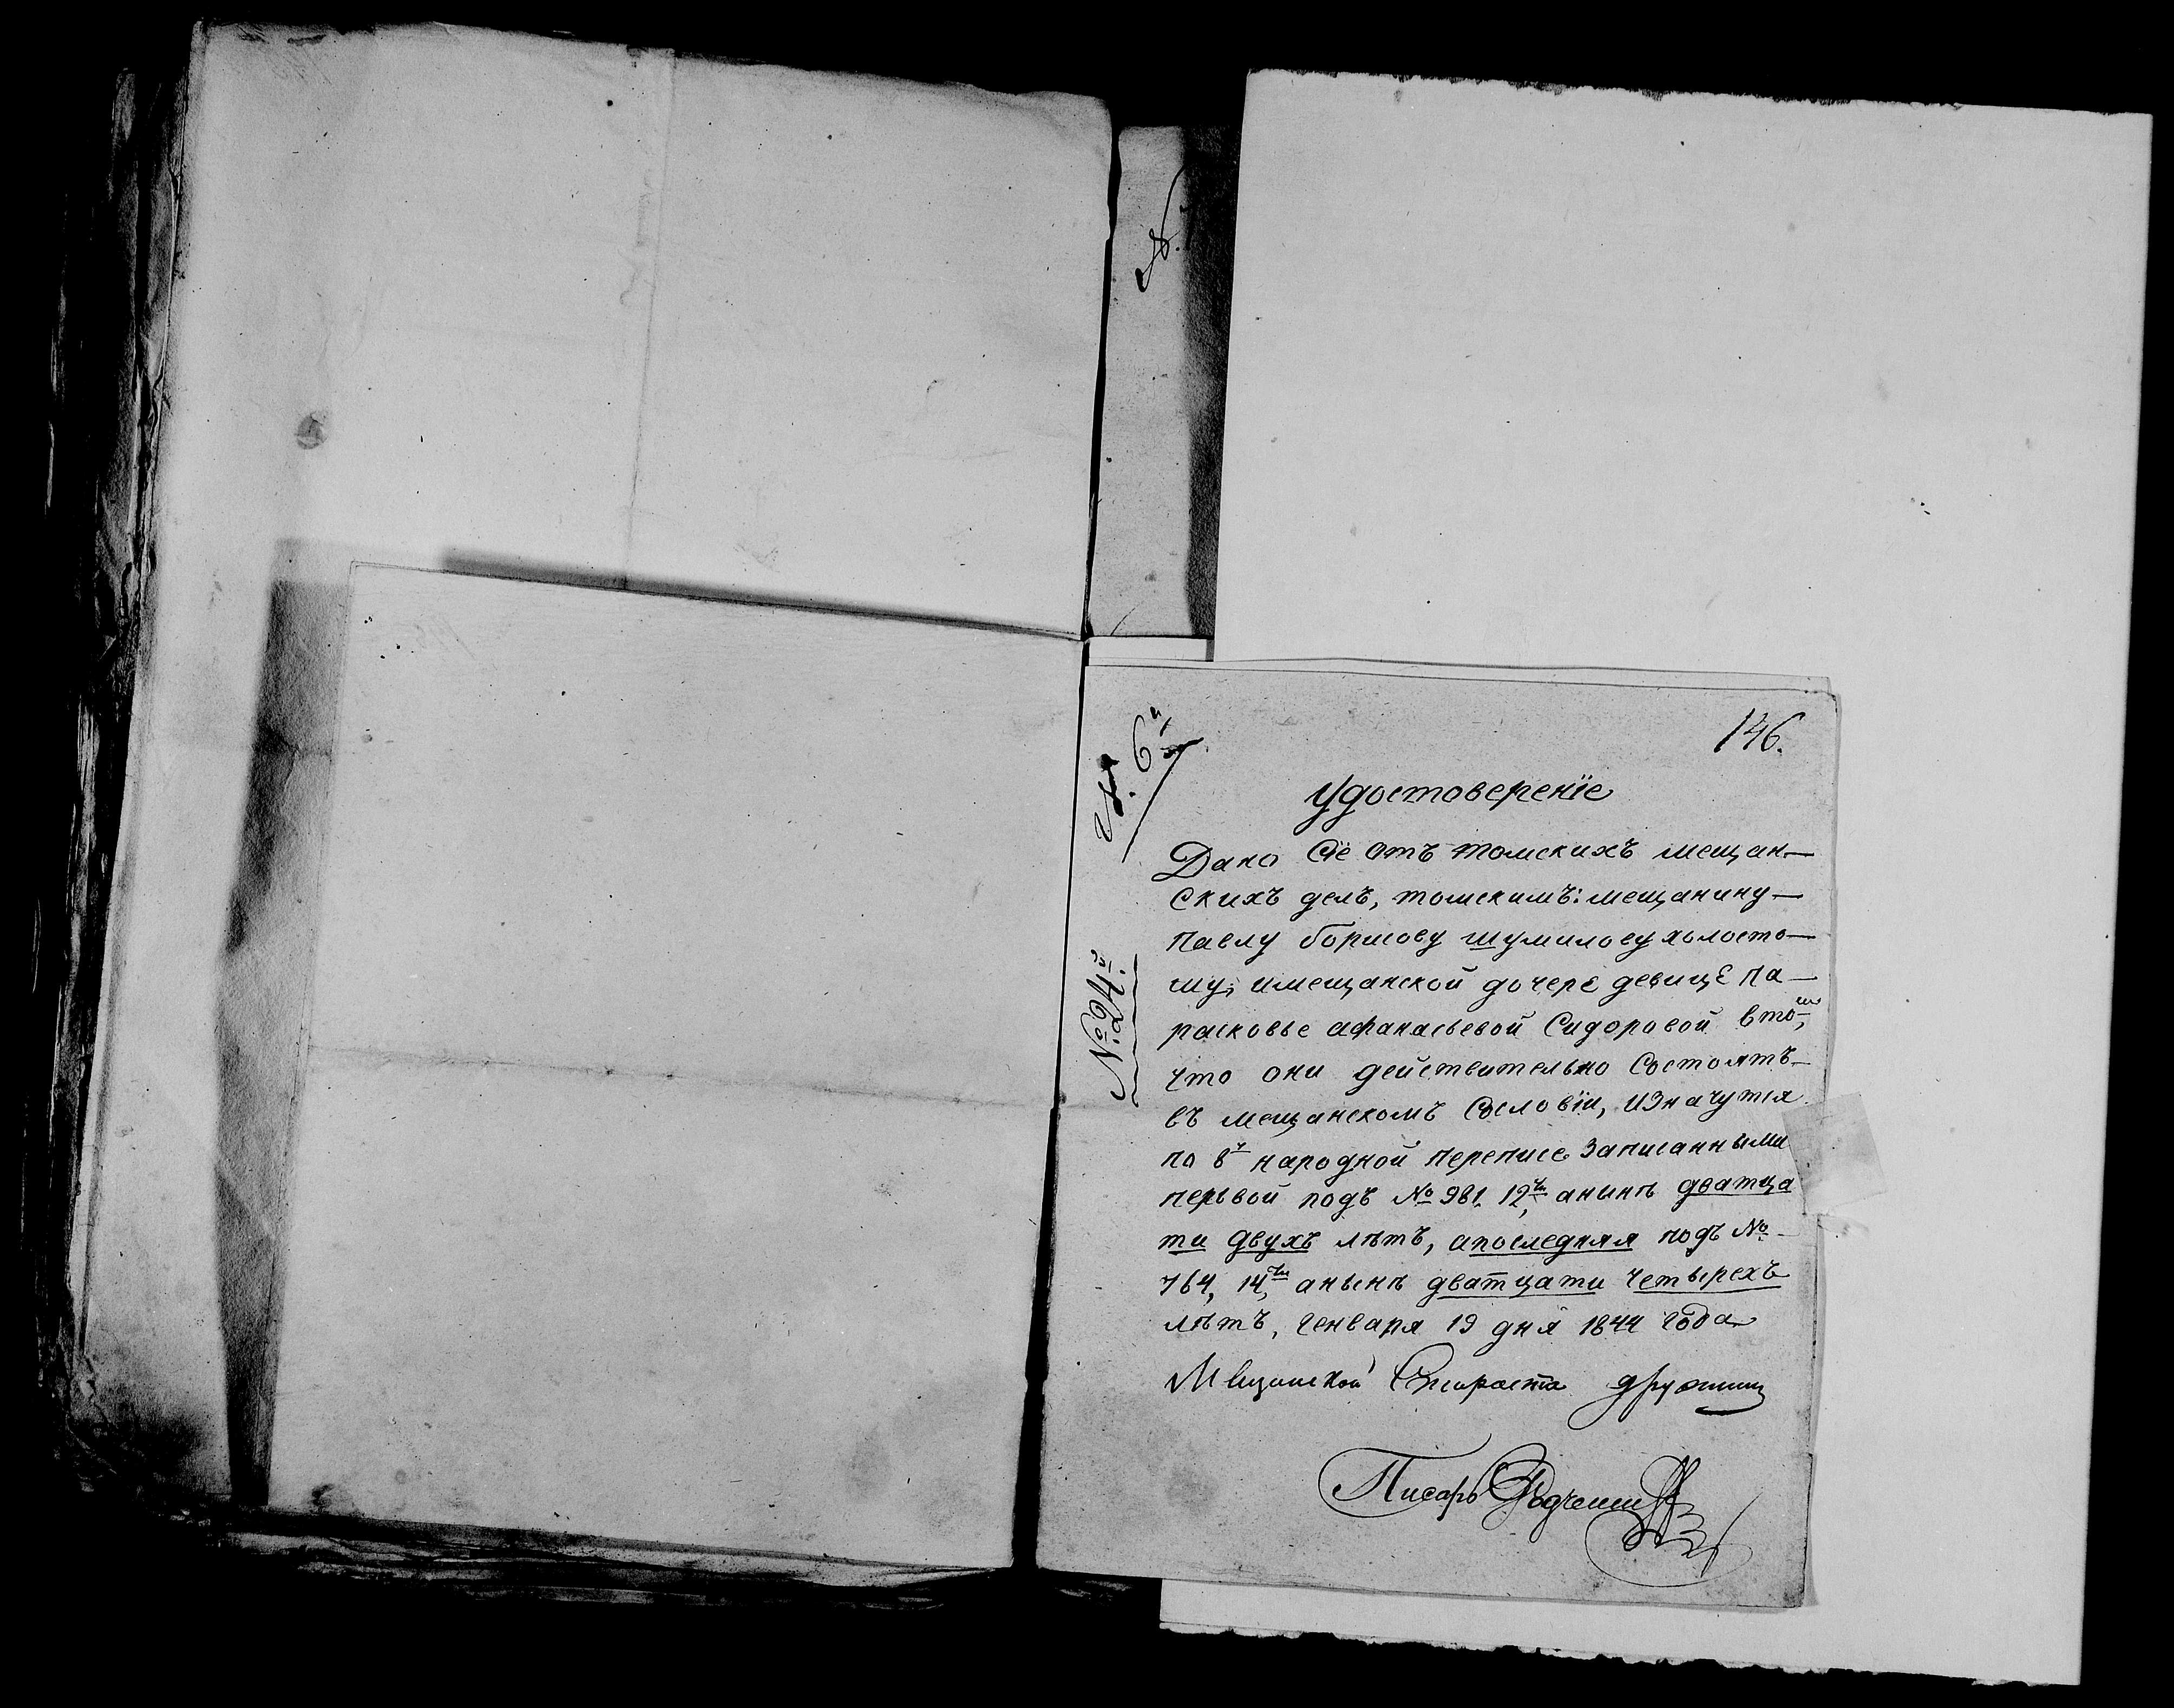 146.
№ 6й
№ 24й
Удостоверенїе
Дано Сїе отъ томскихъ мещан—
скихъ делъ, томскимъ: мещанину—
павлу борисову шумилову холосто—
му, имещанской дочере девице па—
расковье афанасьевой Сидоровой втомъ,
что они действительно Состоятъ—
въ мещанскомъ Сословїи, изначутся
по 8й народной переписе записанными
первой подъ № 981 12ти, анынѣ дватца
ти двухъ лѣтъ, апоследняя подъ №—
764, 14ти, анынѣ дватцати четырехъ
лѣтъ, генваря 19 дня 1844 года
Мещанской Староста
Писарь